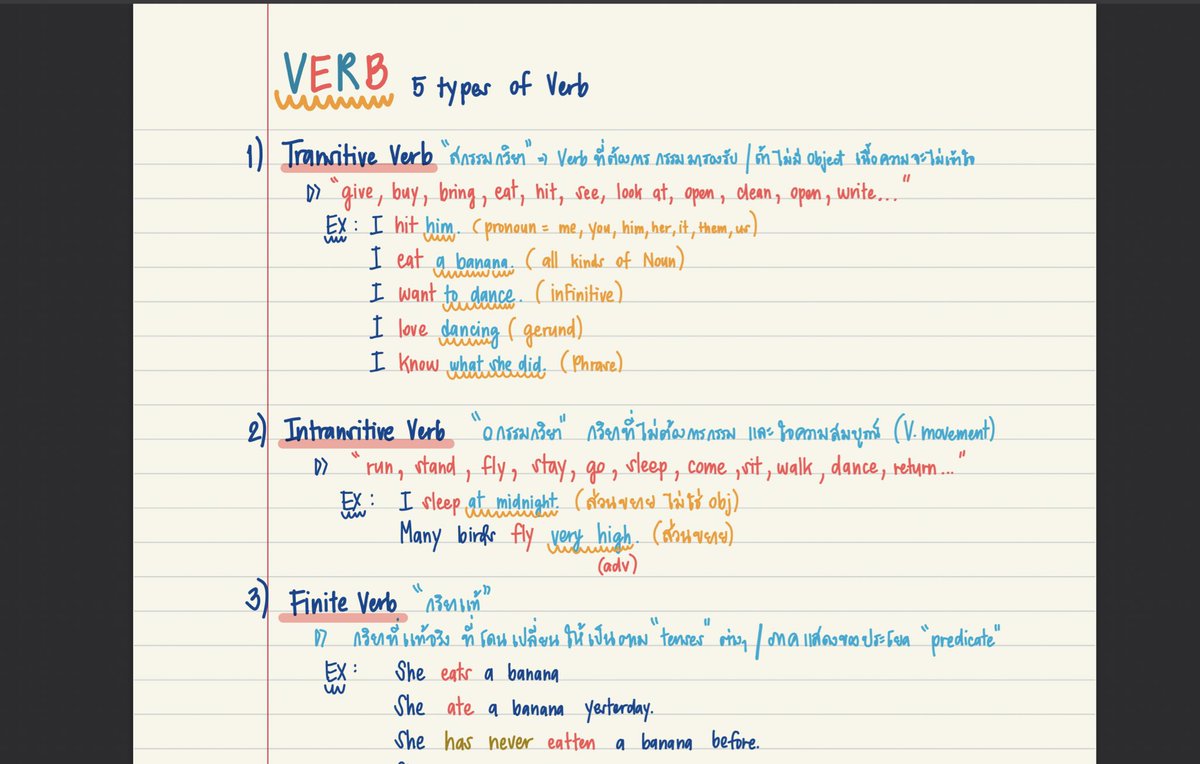 VERB 5 types of Verb
1) Transitive Verb "สกรรมกริยา" → Verb ที่ต้องการ กรรมมารองรับ / ถ้าไม่มี Object เนื้อความจะไม่เข้าใจ
"give, buy, bring, eat, hit, see, look at, open, clean, open, write..."
EX: I hit him. (pronoun = me, you, him, her, it, them, us)
I eat a banana. (all kinds of Noun)
I want to dance. (infinitive)
I love dancing (gerund)
I know what she did. (Phrase)
2) Intransitive Verb "อกรรมกริยา" กริยาที่ไม่ต้องการกรรม และใจความสมบูรณ์ (V. movement)
"run, stand, fly, stay, go, sleep, come, sit, walk, dance, return..."
EX: I sleep at midnight. (ส่วนขยาย ไม่ใช่ obj)
Many birds fly very high. (ส่วนขยาย)
(adv)
3) Finite Verb "กริยาแท้"
กริยาที่แท้จริง ที่โดนเปลี่ยน ให้เป็นตาม "tenses" ต่างๆ / ภาคแสดงของประโยค "predicate"
EX: She eats a banana
She ate a banana yesterday.
She has never eatten a banana before.